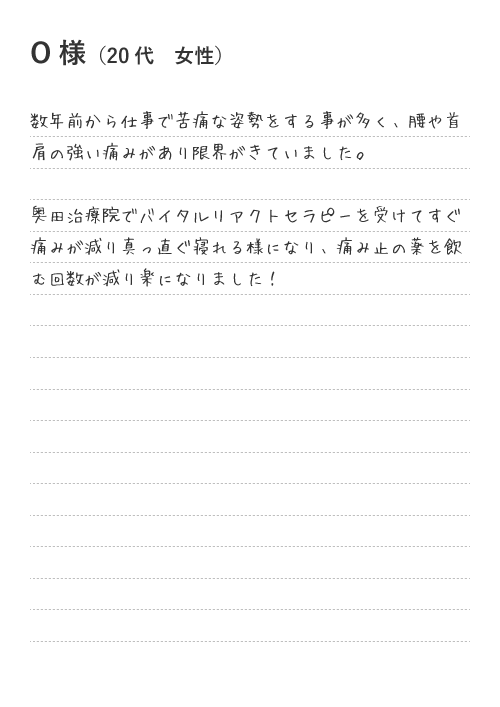 O 様（20 代　女性）
数年前から仕事で苦痛な姿勢をする事が多く、腰や首
肩の強い痛みがあり限界がきていました。
奥田治療院でバイタルリアクトセラピーを受けてすぐ
痛みが減り真っ直ぐ寝れる様になり、痛み止の薬を飲
む回数が減り楽になりました！